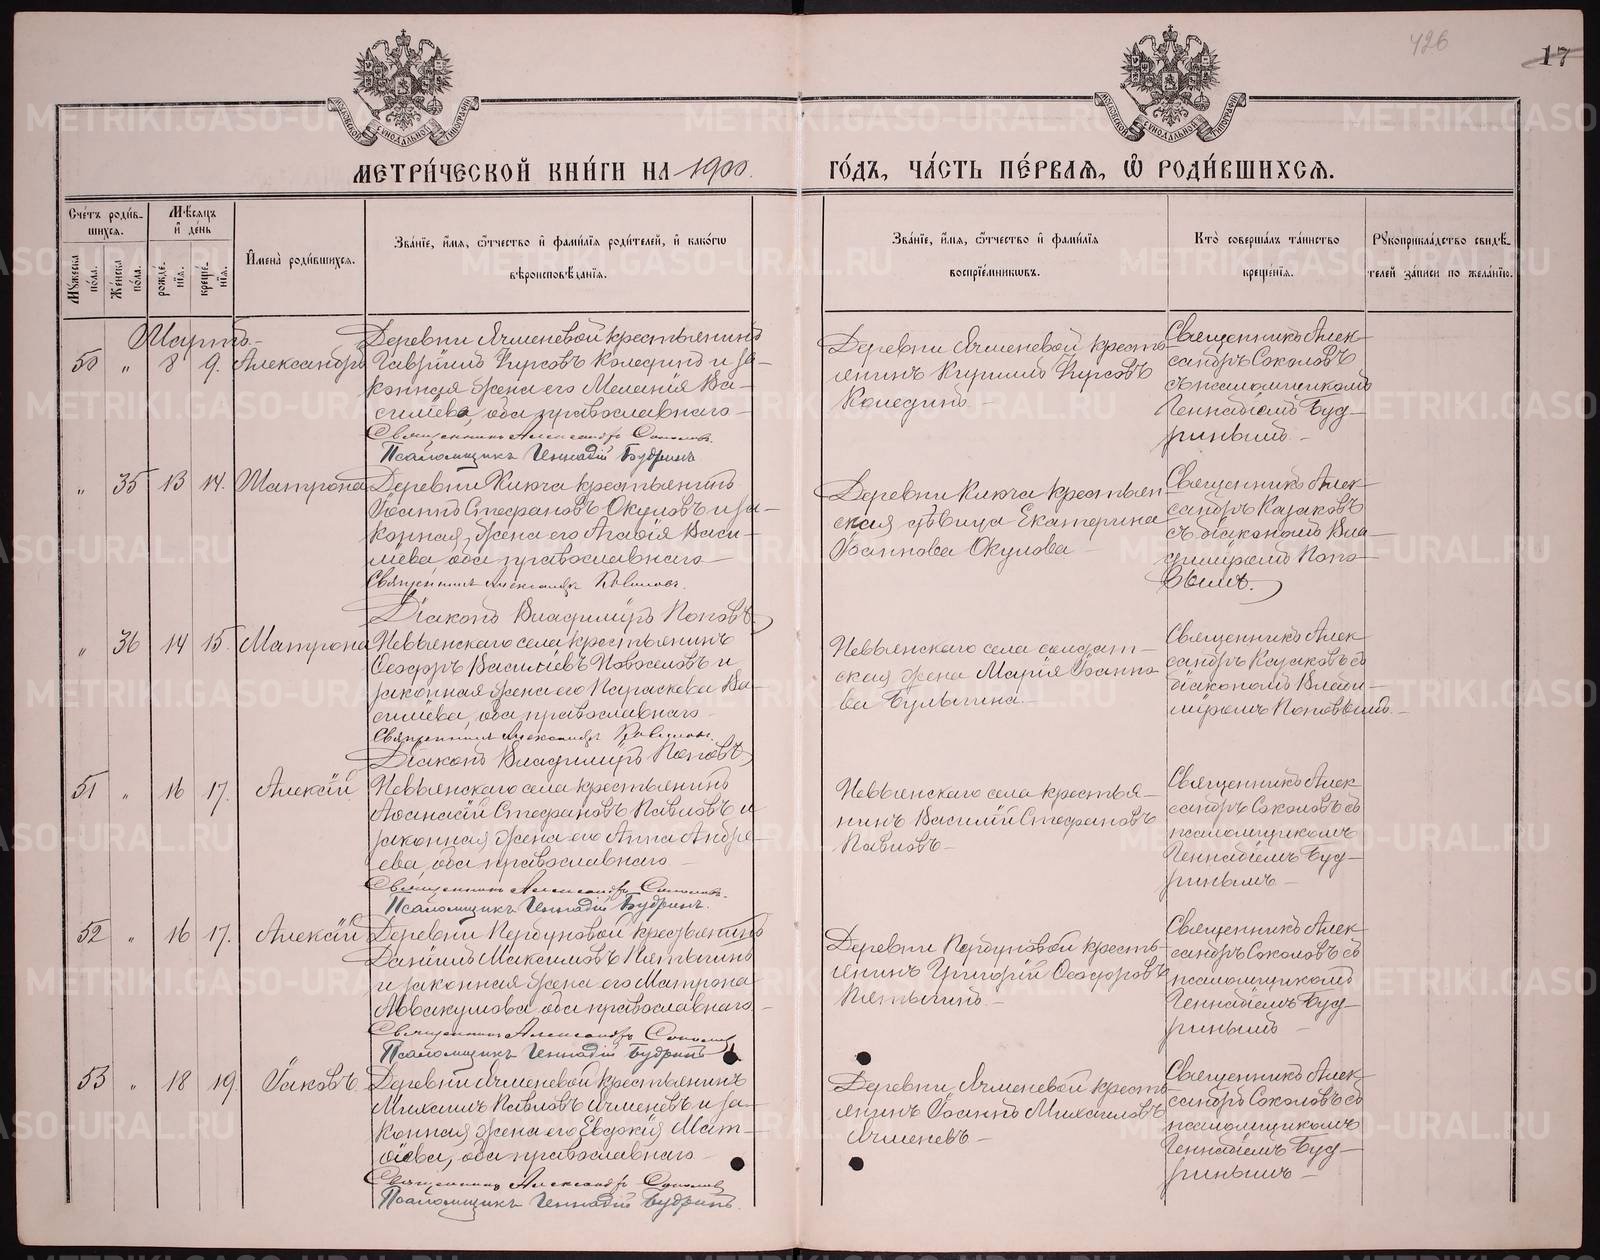 426
17
МОСКОВСКОЙ СѴНОДАЛЬНОЙ ТИПОГРАФІИ
МОСКОВСКОЙ СѴНОДАЛЬНОЙ ТИПОГРАФІИ
МЕТРИ́ЧЕСКОЙ КНИ́ГИ НА 1900.
ГО́ДЪ, ЧА́СТЬ ПЕ́РВАѦ, Ѽ РОДИ́ВШИХСѦ.
Сче́тъ роди́в-
шихсѧ.
Мꙋ́жеска по́ла.
Же́нска по́ла.
Мѣ́сѧцъ и҆ де́нь
рожде́-нїѧ.
креще́-нїѧ.
И҆мена̀ роди́вшихсѧ.
Зва́нїе, и҆́мѧ, ѻ҆́тчество и҆ фами́лїѧ роди́телей, и҆ како́гѡ
вѣроисповѣ́данїѧ.
Зва́нїе, и҆́мѧ, ѻ҆́тчество и҆ фами́лїѧ
воспрїе́мникѡвъ.
Кто̀ соверша́лъ та́инство
креще́нїѧ.
Рꙋкоприкла́дство свидѣ́-
телей за́писи по жела́нїю.
Мартъ
50 „ 8 9. Александръ
Деревни Ячменевой крестьянинъ
Гавріилъ Фирсовъ Коледин и за-
конная жена его Меланія Ва-
сильева, оба православнаго
Священникъ Александръ Соколовъ.
Псаломщикъ Геннадій Будринъ
Деревни Ячменевой кресть-
янинъ Кириллъ Фирсовъ
Колединъ
Священникъ Алек-
сандръ Соколовъ
съ псаломщикомъ
Геннадіемъ Буд-
ринымъ
„ 35 13 14. Матрона
Деревни Ключа крестьянинъ
Іоаннъ Стефановъ Окуловъ и за-
конная жена его Агафія Васи-
льева, оба православнаго
Священникъ Александръ
Діаконъ Владиміръ Поповъ
Деревни Ключа крестьян-
ская дѣвица Екатерина
Іоаннова Окулова
Священникъ Алек-
сандръ Казаковъ
съ діакономъ Вла-
диміромъ Попо-
вымъ.
„ 36 14 15. Матрона
Невьянскаго села крестьянинъ
Ѳеодоръ Васильевъ Новоселовъ и
законная жена его Параскева Ва-
сильева, оба православнаго
Священникъ Александръ
Діаконъ Владиміръ Поповъ
Невьянскаго села солдат-
ская жена Марія Іоанно-
ва Булыгина.
Священникъ Алек-
сандръ Казаковъ съ
діакономъ Влади-
міромъ Поповымъ.
51 „ 16 17. Алексій
Невьянскаго села крестьянинъ
Аѳанасій Стефановъ Павловъ и
законная жена его Анна Андре-
ева, оба православнаго
Священникъ Александръ Соколовъ.
Псаломщикъ Геннадій Будринъ.
Невьянскаго села крестья-
нинъ Василій Стефановъ
Павловъ
Священникъ Алек-
сандръ Соколовъ съ
псаломщикомъ
Геннадіемъ Буд-
ринымъ
52 „ 16 17. Алексій
Деревни Первуновой крестьянинъ
Даніилъ Максимовъ Пятыгинъ
и законная жена его Матрона
Аввакумова, оба православнаго
Священникъ Александръ Соколовъ
Псаломщикъ Геннадій Будринъ
Деревни Первуновой кресть-
янинъ Григорій Ѳеодоровъ
Пятыгинъ.
Священникъ Алек-
сандръ Соколовъ съ
псаломщикомъ
Геннадіемъ Буд-
ринымъ
53 „ 18 19. Іаковъ
Деревни Ячменевой крестьянинъ
Михаилъ Павловъ Ячменевъ и за-
конная жена его Евдокія Мат-
ѳіева, оба православнаго
Священникъ Александръ Соколовъ
Псаломщикъ Геннадій Будринъ.
Деревни Ячменевой кресть-
янинъ Іоаннъ Михайловъ
Ячменевъ
Священникъ Алек-
сандръ Соколовъ съ
псаломщикомъ
Геннадіемъ Буд-
ринымъ
METRIKI.GASO-URAL.RU